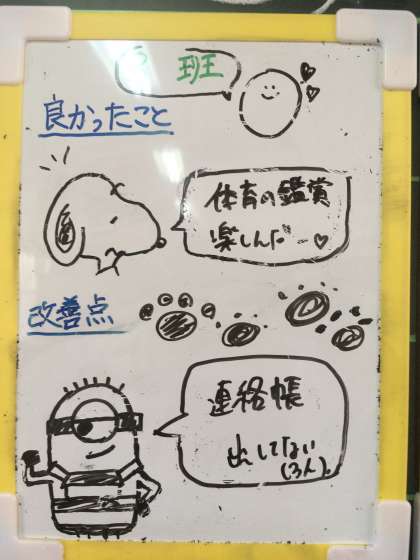 班
良かったこと
体育の鑑賞
楽しんだー
改善点
連絡帳
出してない
(3人)。